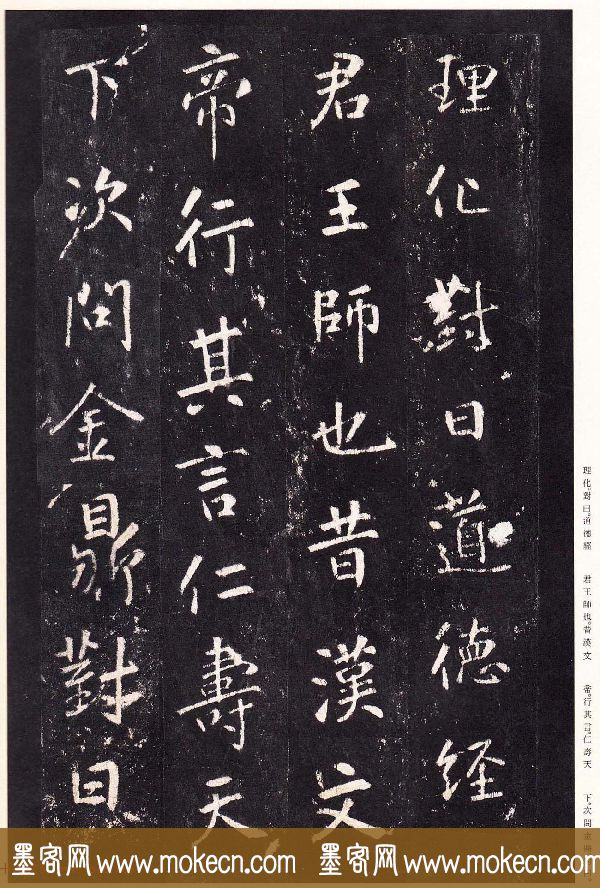 理化對曰道德經
君王師也昔漢文
帝行其言仁壽天
下次問金鼎對曰
理化對曰道德經　君王師也昔漢文　帝行其言仁壽天　下次問金
墨客网 www.mokecn.com 墨客网 www.mokecn.com